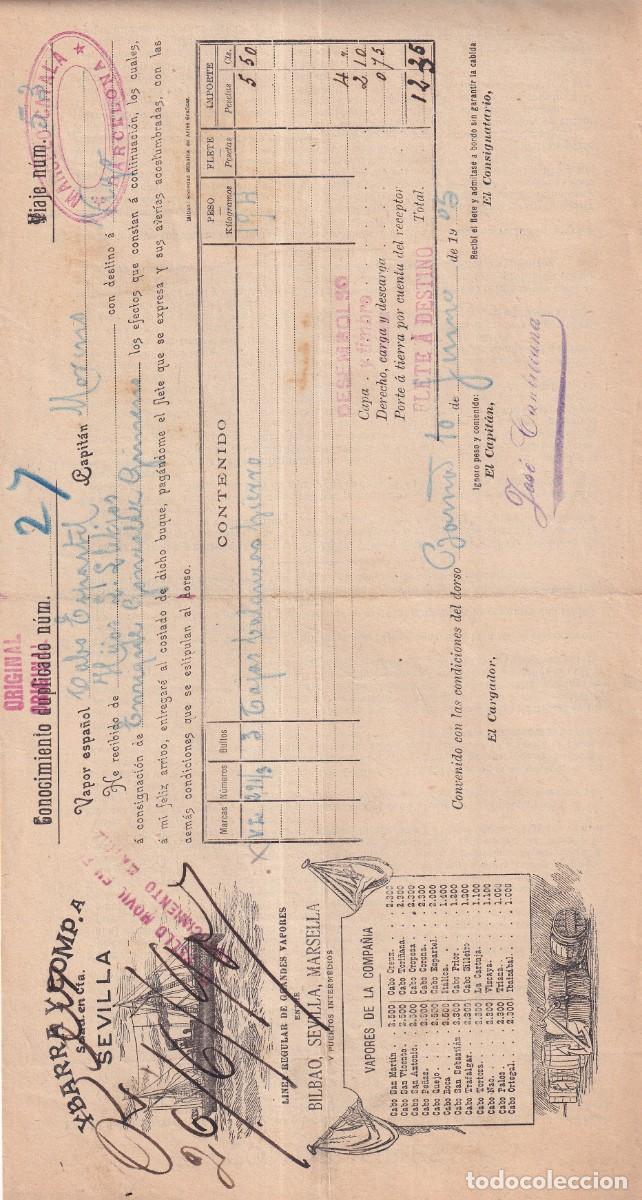 YBARRA Y COMP.A
S. en Cta.
SEVILLA
26/6/
LINEA REGULAR DE GRANDES VAPORES
ENTRE
BILBAO, SEVILLA, MARSELLA
Y PUERTOS INTERMEDIOS
VAPORES DE LA COMPAÑIA
Cabo San Martin . 2.500
Cabo San Vicente. 2.500
Cabo San Antonio. 2.500
Cabo Peñas. 2.500
Cabo Quejo. 2.500
Cabo Roca. 2.500
Cabo San Sebastián 2.500
Cabo Trafalgar. 2.300
Cabo Tortosa. 2.300
Cabo Nao. 2.300
Cabo Palos. 2.300
Cabo Ortegal. 2.300
Cabo Creux. 2.300
Cabo Toriñana. 2.300
Cabo Oropesa 2.300
Cabo Corona. 2.300
Cabo Espartel. 2.000
Itálica. 1.400
Cabo Prior. 1.200
Cabo Silleiro 1.200
La Cartuja. 1.100
Vizcaya. 1.100
Triana. 1.000
Ibaizabal. 1.000
ORIGINAL
ORIGINAL
Conocimiento duplicado núm. 27
Viaje núm. 53
BARCELONA
Vapor español Cabo Espartel Capitán
He recibido de Hijos con destino á Vigo
á consignación de Enrique los efectos que constan á continuación, los cuales,
á mi feliz arribo, entregaré al costado de dicho buque, pagándome el flete que se expresa y sus averías acostumbradas, con las
demás condiciones que se estipulan al dorso.
Marcas Números Bultos CONTENIDO PESO Kilogramos FLETE Pesetas IMPORTE Pesetas Cts.
3 Cajas 5 50
DESEMBOLSO
Capa 4
Derecho, carga y descarga 2 10
Porte á tierra por cuenta del receptor 0 75
FLETE Á DESTINO
Total. 12 35
Convenido con las condiciones del dorso 10 de Junio de 19 03
El Cargador,
Ignoro peso y contenido:
El Capitán,
José
Recibí el flete y admítase a bordo sin garantir la cabida
El Consignatario,
todocoleccion